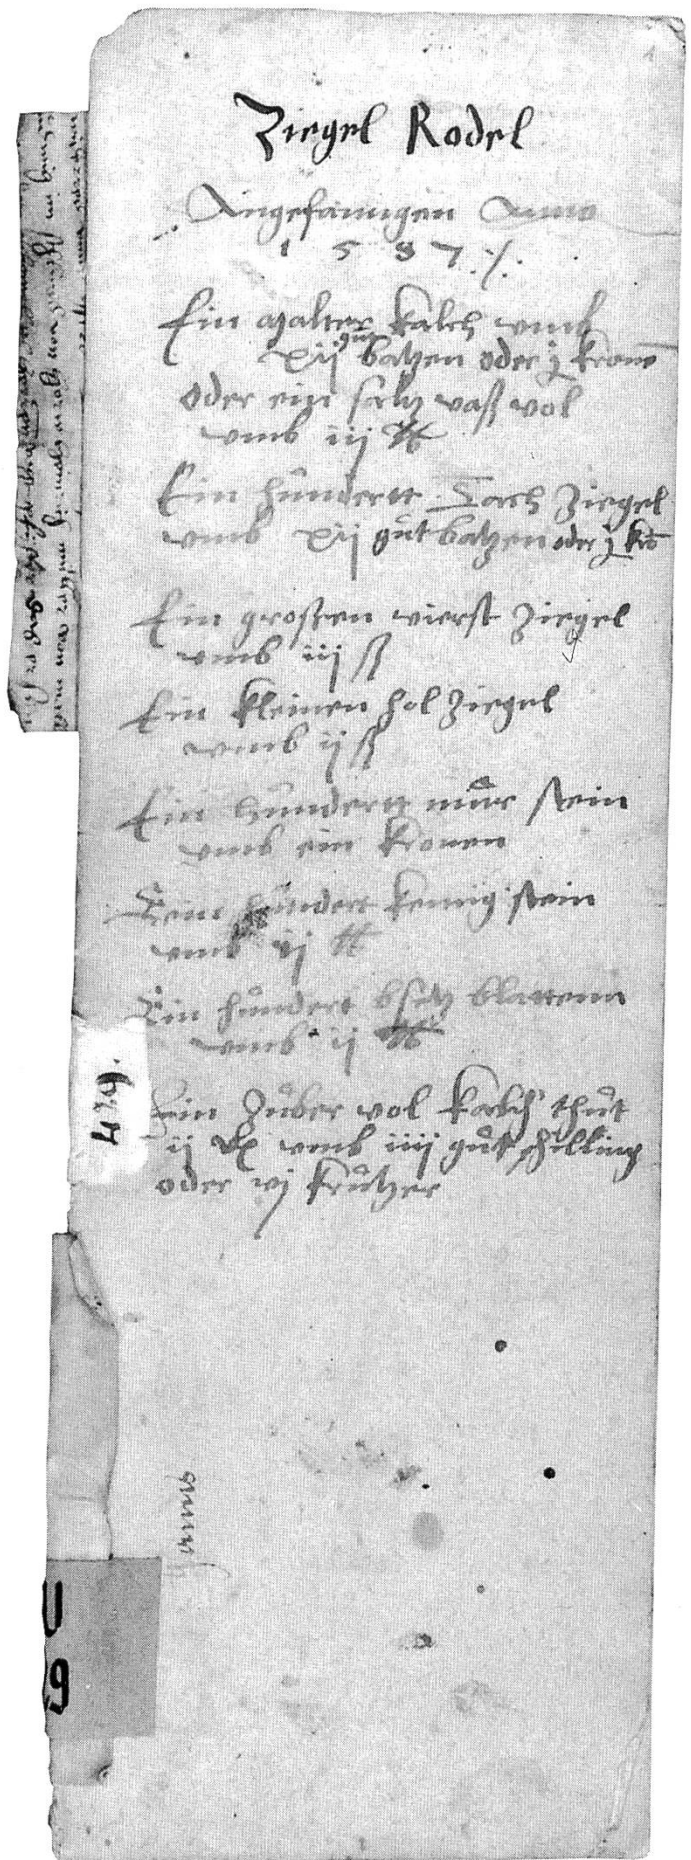 Ziegel Rodel
Angefanngen Anno
1 5 8 7 ./.
Ein malter kalch vmb
xij gut batzen oder j krone
oder ein saltz vaß vol
vmb iij ℔
Ein hundertt Tach Ziegel
vmb xij gůt batzen oder j kro
Ein großen vierst Ziegel
vmb iij ß
Ein kleinen hol Ziegel
vmb ij ß
Ein hundertt můr stein
vmb ein kronen
Ein hundert kemig stein
vmb ij ℔
Ein hůndert bsetz blattenn
vmb ij ℔
Ein Zůber vol kalch thůt
ij vmb iiij gůt schilling
oder vj krůtzer
479.
U
9